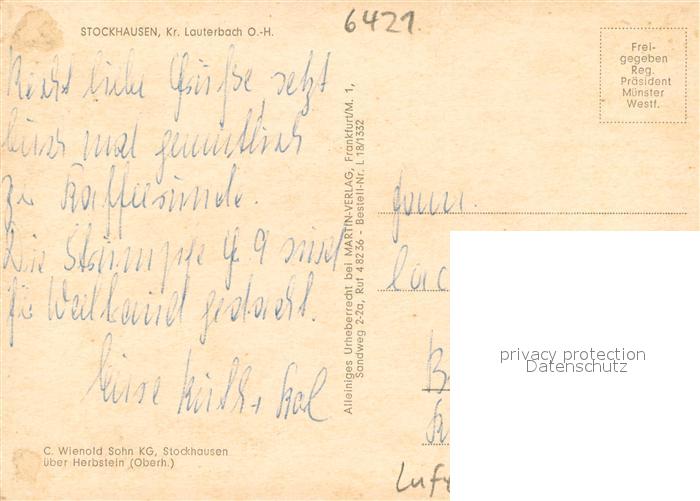 STOCKHAUSEN, Kr. Lauterbach O.-H.
6421
Frei-
gegeben
Reg.
Präsident
Münster
Westf.
Recht liebe Grüße, setzt
Euch mal gemütlich
zur Kaffeerunde.
Die Strümpfe G. 9 sind
für Weilband gedacht.
Eure
Alleiniges Urheberrecht bei MARTIN-VERLAG, Frankfurt/M. 1,
Sandweg 2-2a, Ruf 4 82 36 - Bestell-Nr. L 18/1332
Fam.
privacy protection
Datenschutz
C. Wienold Sohn KG, Stockhausen
über Herbstein (Oberh.)
Luf